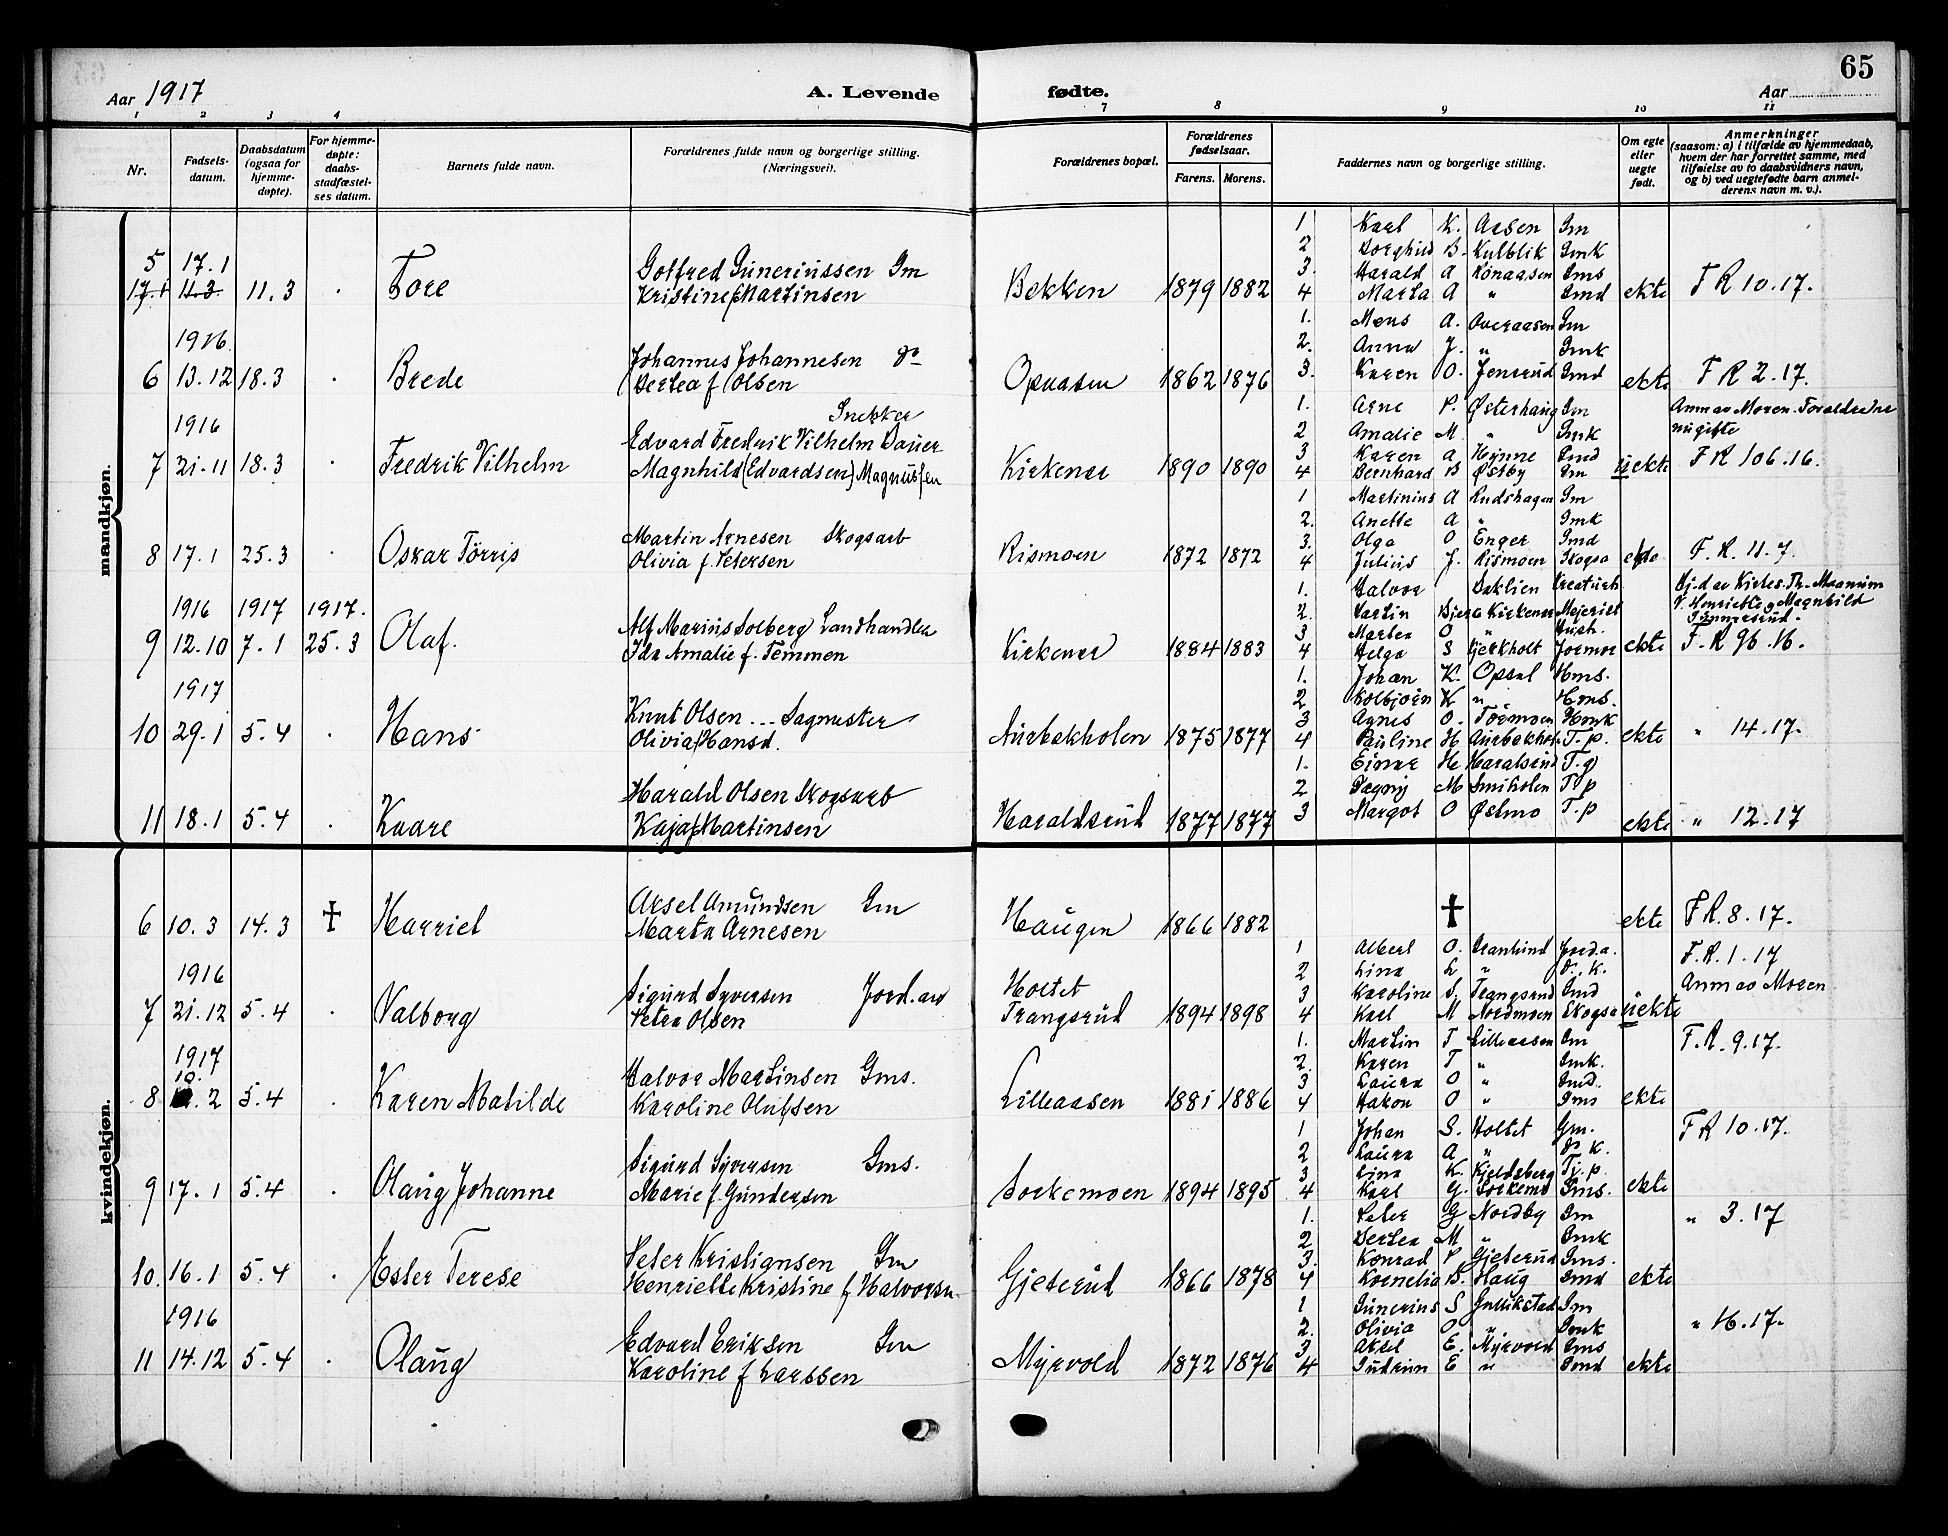 65
Aar 1917 A. Levende fødte. Aar
1 2 3 4 7 8 9 10 11
Nr. Fødsels-datum. Daabsdatum (ogsaa for hjemme-døpte). For hjemme-døpte: daabs-stadfæstel-ses datum. Barnets fulde navn. Forældrenes fulde navn og borgerlige stilling. (Næringsvei). Forældrenes bopæl. Forældrenes fødselsaar. Farens. Morens. Faddernes navn og borgerlige stilling. Om egte eller uegte født. Anmerkninger (saasom: a) i tilfælde av hjemmedaab, hvem der har forrettet samme, med tilføielse av to daabsvidners navn, og b) ved uegtefødte barn anmel-derens navn m. v.).
mandkjøn.
1 Karl K. Aasen Gm
5 17.1 Gotfred Guneriussen Gm 2 Borghild B. Kulblik Gmk
3. Harald A Rönaasen Gms
17.1 11.3 11.3 . Tore Kristine f Martinsen Bekken 1879 1882 4 Marta A " Gmd ekte F R 10.17.
1. Mons A. Overaasen Gm
1916. Johannes Johannesen do 2. Anna J. " Gmk
6 13.12 18.3 . Brede Bertea f. Olsen Opaasen 1862 1876 3. Karen O. Jensrud Gmd ekte F R 2.17.
Snekker 1. Arne P. Østerhaug Gm Anm av Moren. Forældrene
1916 Edvard Fredrik Vilhelm Bauer 2 Amalie M. " Gmk nu gifte
3 Karen A Hynne Gmd
7 21.11 18.3 . Fredrik Vilhelm Magnhild (Edvardsen) Magnussen Kirkener 1890 1890 4 Bernhard B Østby Gm uekte F R 106.16.
1 Martinius A Rudshagen Gm
2. Anette A " Gmk
Martin Arnesen Skogsarb 3. Olga O Enger Gmd
8 17.1 25.3 . Oskar Törris Olivia f. Petersen Rismoen 1872 1872 4 Julius J. Rismoen Skogsa ekte F. R. 11.7.
1. Halvor Baklien Hj.d av Kirkes. Th. Maanum
1916 1917 1917. Alf Marius Solberg Landhandler 2. Martin Kirkener Meierist Henriette og Magnhild
3 Martea O "
9 12.10 7.1 25.3 Olaf. Ida Amalie f. Temmen Kirkener 1884 1883 4 Helga S Gjerkholt ekte F. R 96.16.
1. Johan K. Opsal Hms.
1917 Knut Olsen ... Sagmester 2 Kolbjørn K " Hms.
3 Agnes O. Törmoen Hmk
10 29.1 5.4 . Hans Olivia f Hansd. Aurbakholen 1875 1877 4 Pauline H Aurbakhol T. p. ekte " 14.17.
1. Einar H Haraldsrud T. g
Harald Olsen Skogsarb 2 Dagny M Smiholen T. p
11 18.1 5.4 . Kaare Kaja f Martinsen Haraldsrud 1877 1877 3 Margot O Østmo T. p ekte " 12.17
kvindekjøn.
Aksel Amundsen Gm
6 10.3 14.3 † Harriet Marta Arnesen Haugen 1866 1882 † ekte F R. 8.17.
1 Albert O. Granlund Jord.a. F. R. 1.17
1916 Sigurd Syversen Jord.arb Holtet 2 Lina L " d. k. Anm av Moren
3 Karoline S. Trangsrud Gmd
7 21.12 5.4 . Valborg Petra Olsen Trangsrud 1894 1898 4 Karl M Nordmoen Skogsa uekte
1917 1. Martin T Lilleaasen Gm F. R. 9.17.
10. Halvor Martinsen Gms. 2. Karen T " Gmk.
3 Laura O " Gmd.
8 .2 5.4 . Karen Matilde Karoline Olufsen Lilleaasen 1881 1886 4 Hakon O " Gms ekte
1 Johan S. Holtet Gm. F R 10.17.
Sigurd Syversen Gms. 2 Laura A " do k.
3 Lina K. Kjeldsberg T. p.
9 17.1 5.4 . Olaug Johanne Marie f. Gundersen Sorkemoen 1894 1895 4 Karl G. Sorkemo Gms. ekte
1. Peter G Nordby Gm " 3.17
Peter Kristiansen Gm 2 Bertea M " Gmk
3. Konrad P Gjeterud Gms.
10. 16.1 5.4 . Ester Terese Henriette Kristine f Halvorsen Gjeterud 1866 1878 4 Kornelia B. Haug Gmd ekte
1 Gunerius S Gullikstad Gm
1916 Edvard Eriksen Gm 2. Olivia O " Gmk " 16.17.
3 Aksel E. Myrvold Gms
11 14.12 5.4 . Olaug Karoline f Larssen Myrvold 1872 1876 4 Gudrun E " Gmd ekte